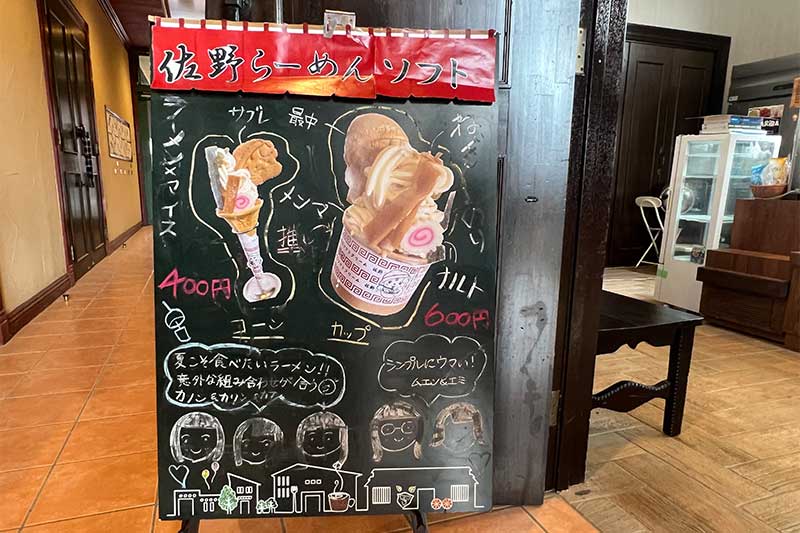 佐野らーめんソフト
ラーメン×アイス
サブレ
最中
メンマ
推し
ナルト
400円
600円
コーン
カップ
夏こそ食べたいラーメン!!
意外な組み合わせが合う
カノン&カリン&
シンプルにウマい!
ムエン&エミ